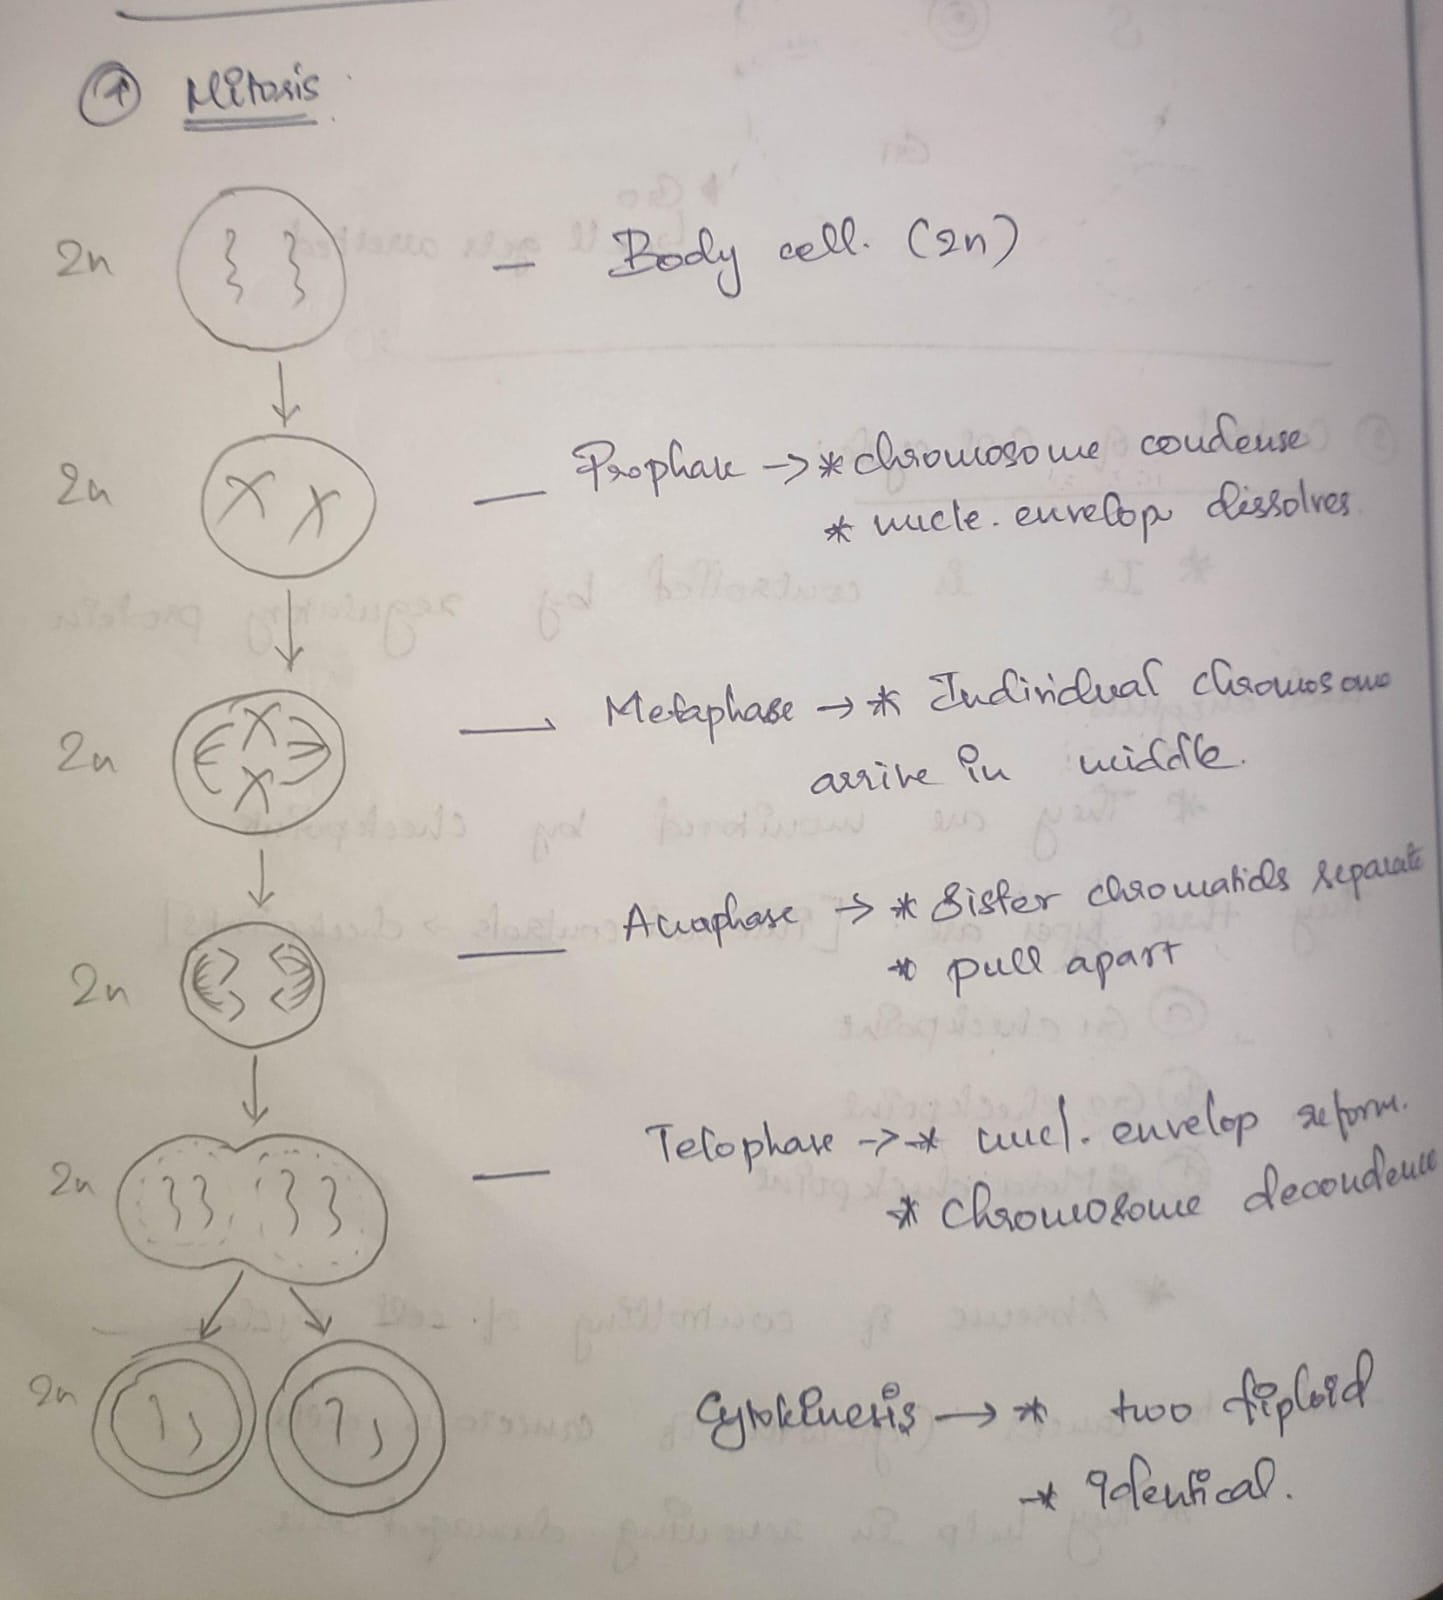 Mitosis
2n – Body cell. (2n)
2n — Prophase -> * chromosome condense
* nucle. envelop dissolves
2n — Metaphase -> * Individual chromosome
arrive in middle.
2n — Anaphase -> * Sister chromatids separate
* pull apart
2n — Telophase -> * nucl. envelop reform.
* chromosome decondence
2n Cytokinesis -> * two diploid
* identical.